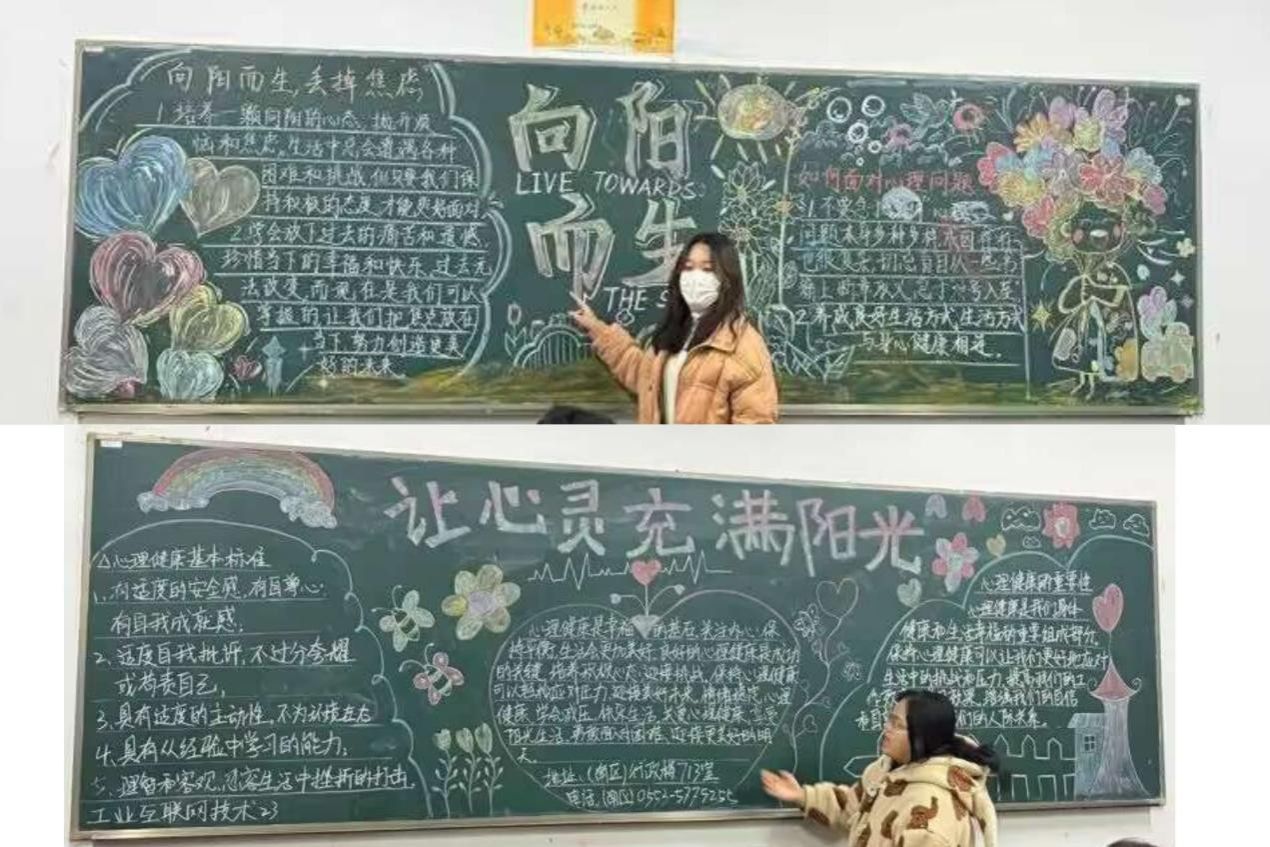 向阳而生，丢掉焦虑
1.培养一颗向阳的心态，抛开烦
恼和焦虑，生活中总会遭遇各种
困难和挑战，但只要我们保
持积极的态度，才能更好面对
2.学会放下过去的痛苦和遗憾，
珍惜当下的幸福和快乐，过去无
法改变，而现在是我们可以
掌握的，让我们把焦点放在
当下，努力创造更美
好的未来。
向阳
LIVE TOWARDS
而生
THE S
如何面对心理问题
1.不要急
问题本身多种多样，原因有
2.养成良好生活方式，生活方式
与身心健康相连。
让心灵充满阳光
△心理健康基本标准
1、有适度的安全感，有自尊心，
有自我成就感。
2、适度自我批评，不过分夸耀
或苛责自己。
3、具有适度的主动性，不为环境左右
4、具有从经验中学习的能力；
5、理智和客观，忍容生活中挫折的打击。
工业互联网技术23
心理健康是幸福 的基石，关注内心，保
持平衡，生活会更加美好，良好的心理健康是成功
的关键，培养积极心态，迎接挑战，保持心理健康
可以轻松应对压力，迎接美好未来，情绪稳定，心理
健康，学会减压，快乐生活，关爱心理健康，享受
阳光生活，勇敢面对困难，迎接更美好的明
天。
地址：（南区）行政楼713室
电话：（南区）0552-5779255
心理健康的重要性
心理健康是我们身体
健康和生活幸福的重要组成部分，
保持心理健康可以让我们更好地应对
生活中的挑战和压力，提高我们的工
增强我们的自信
们的人际关系。